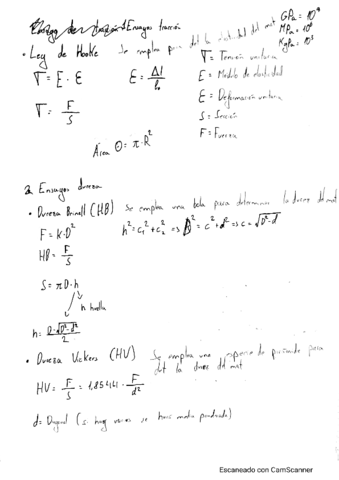 1 Ensayos tracción
• Ley de Hooke Se emplea para det la elasticidad del mat
GPa = 10⁹
MPa = 10⁶
KgPa = 10³
σ = E · ε
ε = Δl / l₀
σ = F / S
σ = Tensión unitaria
E = Modulo de elasticidad
ε = Deformación unitaria
S = Sección
F = Fuerza
Área O = π · R²
2 Ensayos dureza
• Dureza Brinell (HB) Se emplea una bola para determinar la dureza del mat
F = K · D²
h² = c₁² + c₂² => D² = c² + d² => c = √D²-d
HB = F / S
S = π D · h
h huella
h = D - √D² - d² / 2
• Dureza Vickers (HV) Se emplea una especie de piramide para det la dureza del mat
HV = F / S = 1,85441 · F / d²
d = Diagonal (si hay varias se hace media)
Escaneado con CamScanner